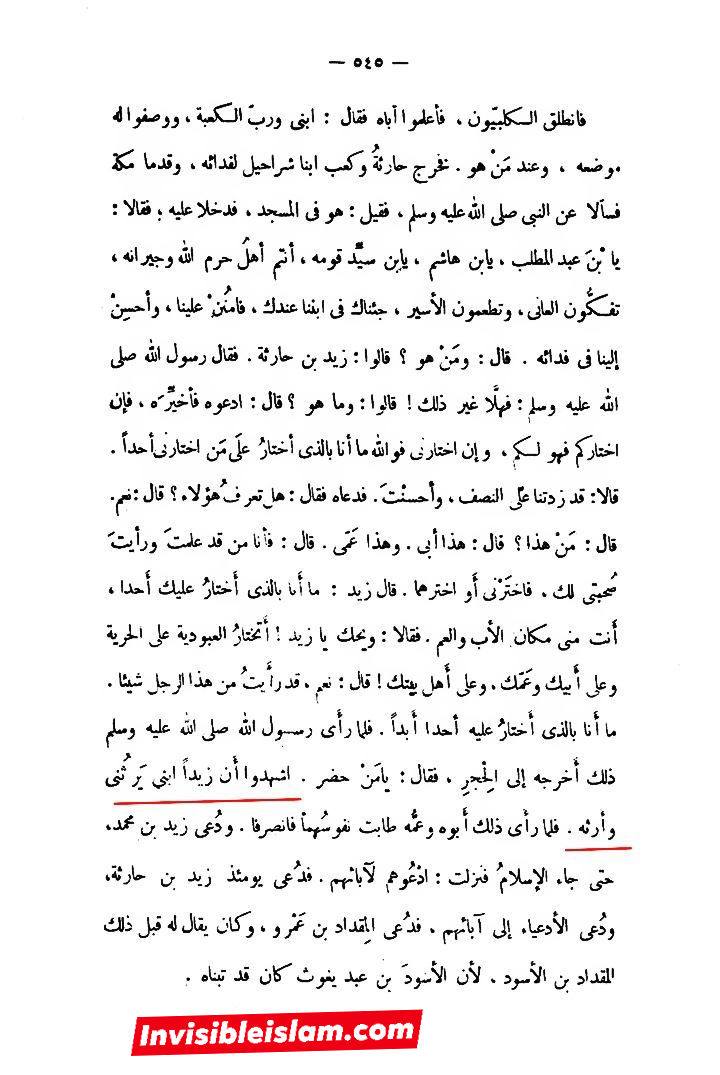 — ٥٤٥ —
فانطلق الكلبيّون ، فأعلموا أباه فقال : ابنى وربّ الكعبة ، ووصفوا له
موضعه ، وعند مَنْ هو . فخرج حارثةُ وكعب ابنا شراحيل لفدائه ، وقدما مكة
فسألا عن النبى صلى الله عليه وسلم ، فقيل : هو فى المسجد ، فدخلا عليه ؛ فقالا :
يا بْنَ عبد المطلب ، يابن هاشم ، يابن سيِّد قومه ، أنتم أهلُ حرم الله وجيرانه ،
تفكُّون العانى ، وتطعمون الأسير ، جئناك فى ابننا عندك ، فامْنُنْ علينا ، وأحسِنْ
إلينا فى فدائه . قال : ومَنْ هو ؟ قالوا : زيد بن حارثة . فقال رسول الله صلى
الله عليه وسلم : فهلَّا غير ذلك ! قالوا : وما هو ؟ قال : ادعوه فأخيِّره ، فإن
اختاركم فهو لكم ، وإن اختارنى فوالله ما أنا بالذى أختارُ علَى مَن اختارنى أحداً .
قالا : قد زدتنا علَى النصف ، وأحسنْتَ . فدعاه فقال : هل تعرفُ هؤلاء ؟ قال : نعم .
قال : مَنْ هذا ؟ قال : هذا أبى . وهذا عَمّى . قال : فأنا من قد علمتَ ورأيتَ
صُحبتى لك ، فاختَرْنى أو اخترهما . قال زيد : ما أنا بالذى أختارُ عليك أحدا ،
أنت منى مكان الأب والعم . فقالا : ويحك يا زيد ! أتختارُ العبودية على الحرية
وعلى أبيك وعَمّك ، وعلى أهل بيتك ! قال : نعم ، قد رأيتُ من هذا الرجل شيئا .
ما أنا بالذى أختارُ عليه أحدا أبداً . فلما رأى رسول الله صلى الله عليه وسلم
ذلك أخرجه إلى الحِجرِ ، فقال : يا مَنْ حضر . اشهدوا أن زيداً ابني يَرِثُنى
وأرثه . فلما رأى ذلك أبوه وعمُّه طابت نفوسُهما فانصرفا . ودُعى زيد بن محمد ،
حتى جاء الإسلامُ فنزلت : ادْعُوهم لآبائهم . فدُعى يومئذ زيد بن حارثة ،
ودُعى الأدعياء إلى آبائهم ، فدُعى المِقداد بن عَمْرو ، وكان يقال له قبل ذلك
المقداد بن الأسود ، لأن الأسودَ بن عبد يغوث كان قد تبناه .
Invisibleislam.com